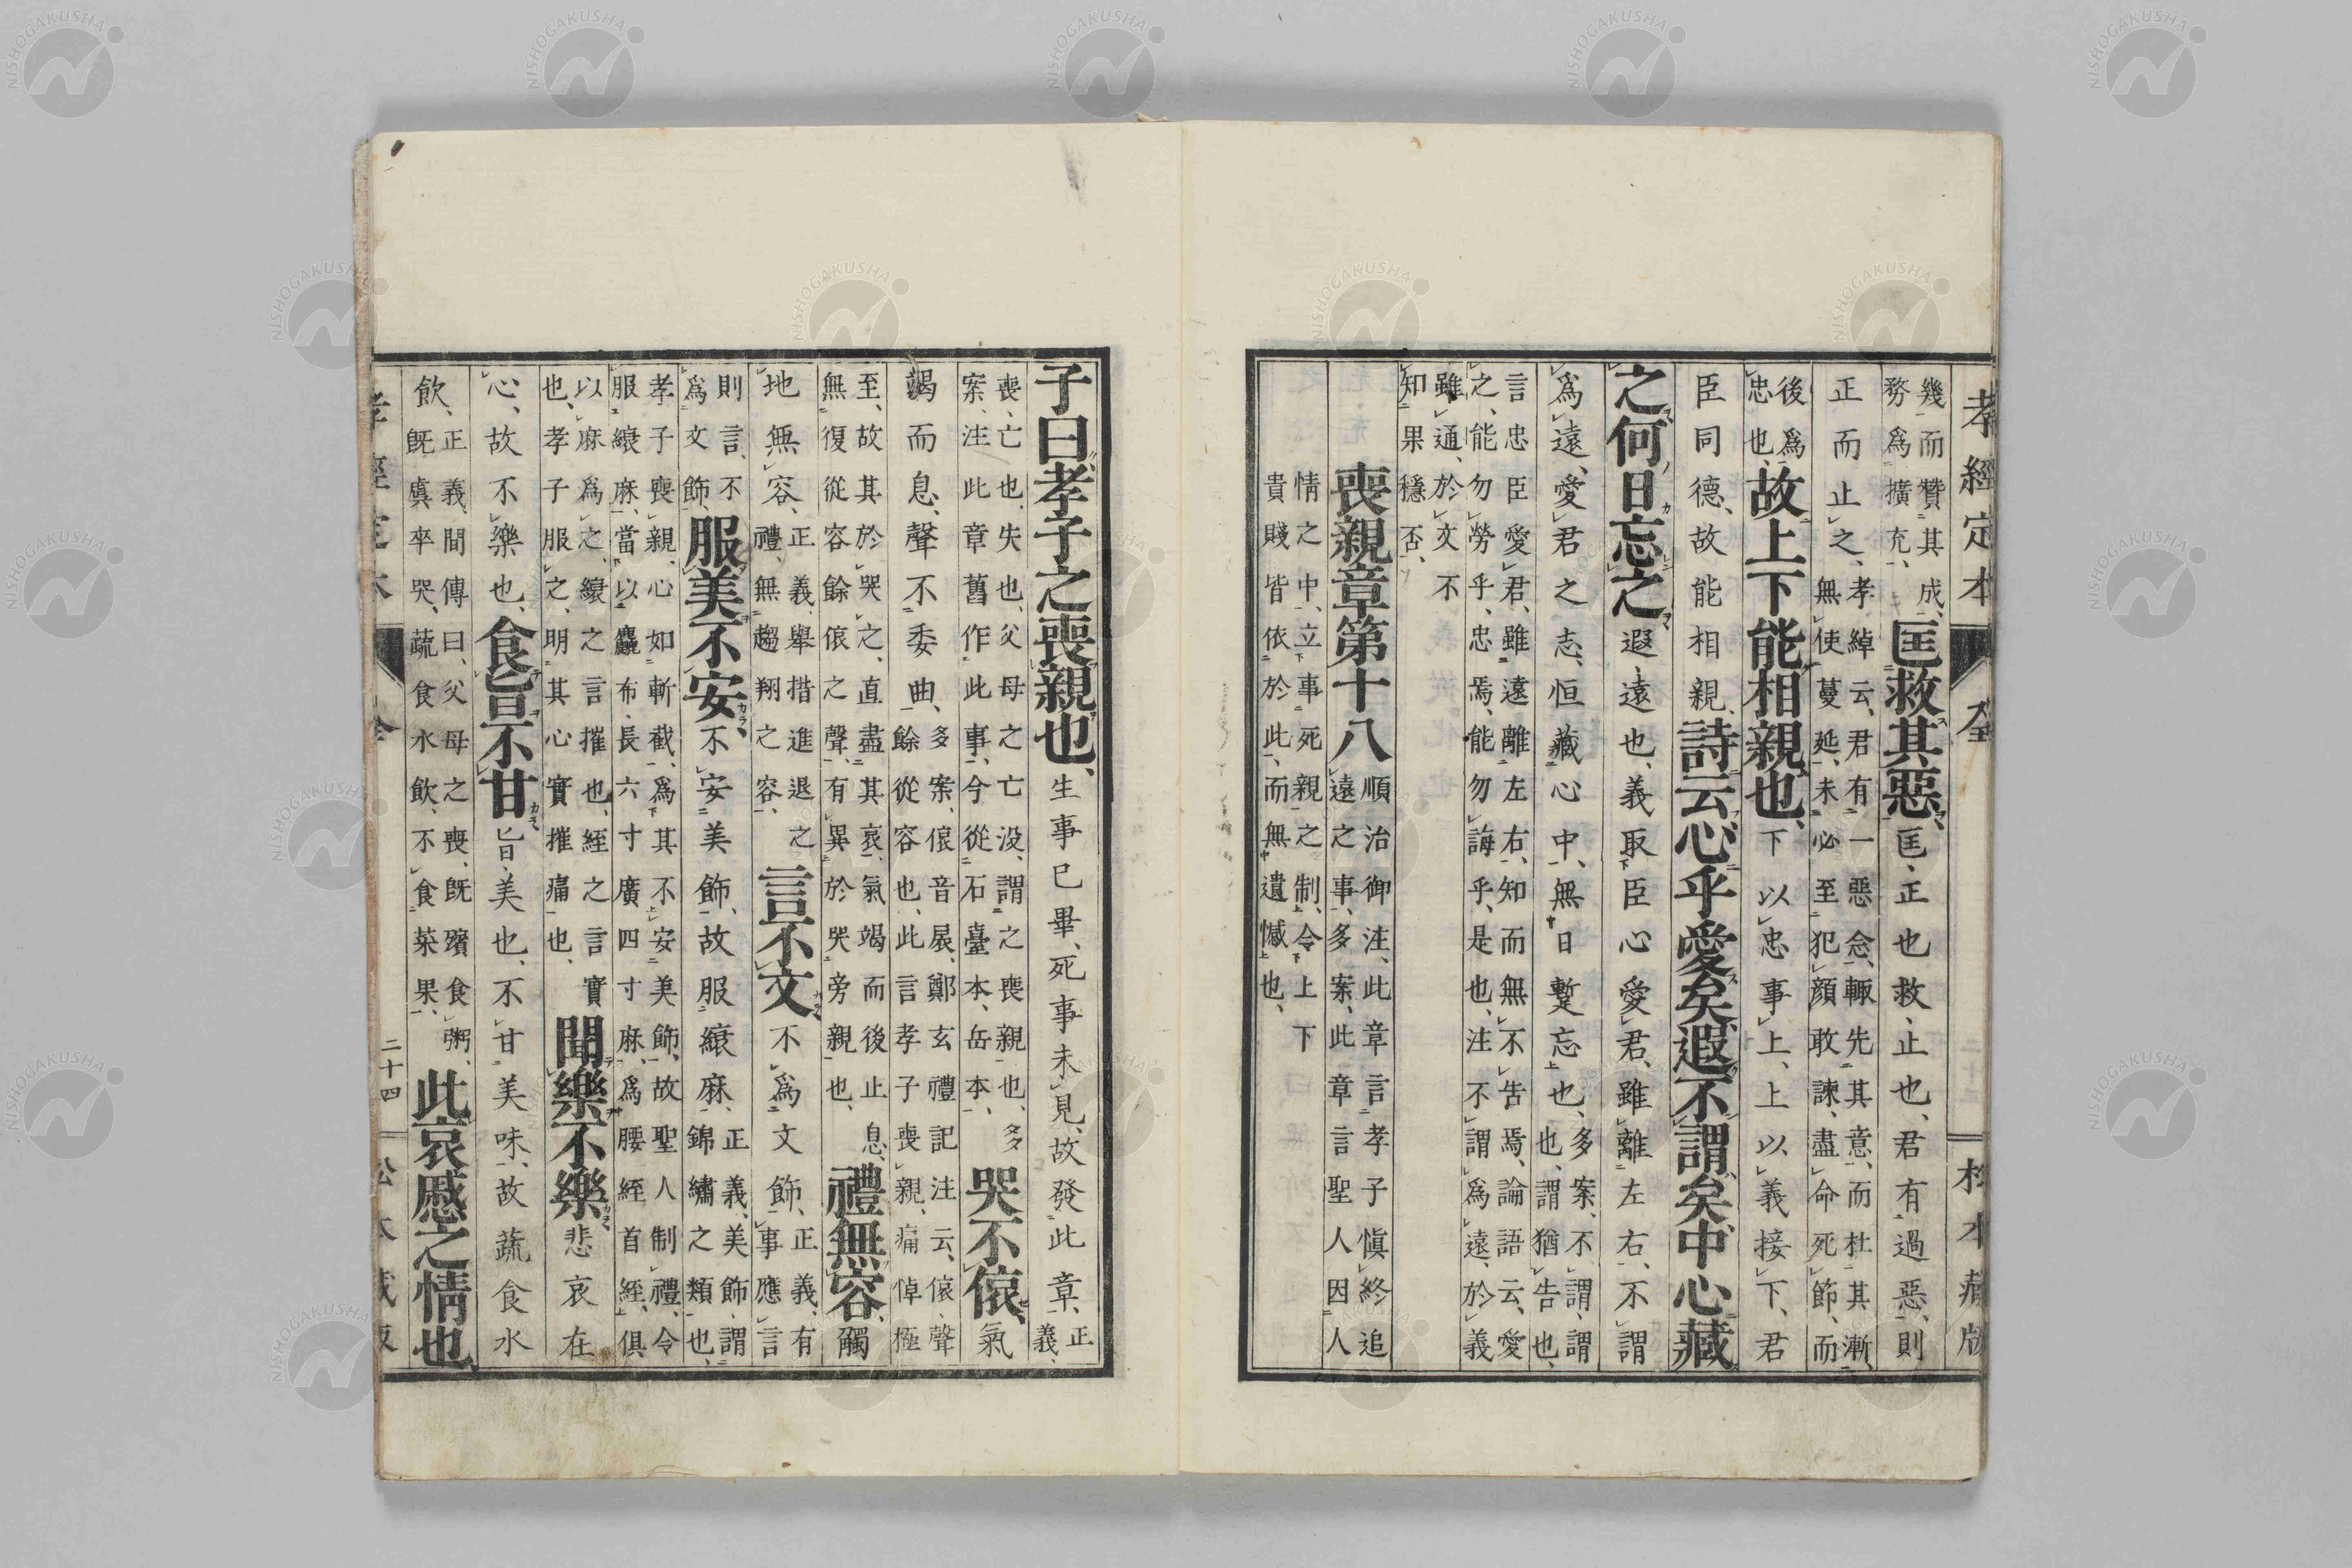 孝經定本 全 松本藏版
幾而贊其成、務爲擴充、匡救其惡、匡、正也、救、止也、君有過惡、則
正而止之、孝綽云、君有一惡念、輙先其意、而杜其漸、無使蔓延、未必至犯顏敢諫、盡命死節、而
後爲忠也、故上下能相親也、下以忠事上、上以義接下、君
臣同德、故能相親、詩云心乎愛矣遐不謂矣中心藏
之何日忘之遐遠也、義取臣心愛君、雖離左右、不謂
爲遠、愛君之志、恒藏心中、無日蹔忘也、多案、不謂、謂也、謂猶告也、
言忠臣愛君、雖遠離左右、知而無不告焉、論語云、愛之、能勿勞乎、忠焉、能勿誨乎、是也、注不謂爲遠、於義
雖通、於文不知果穩否、
喪親章第十八順治御注、此章言孝子愼終追遠之事、多案、此章言聖人因人
情之中、立事死親之制、令上下貴賤皆依於此、而無遺憾也、
子曰孝子之喪親也、生事已畢、死事未見、故發此章、正義、
喪、亡也、失也、父母之亡没、謂之喪親也、多案、注此章舊作此事、今從石臺本、岳本、哭不偯、氣
竭而息、聲不委曲、多案、偯音扆、鄭玄禮記注云、偯、聲餘從容也、此言孝子喪親、痛悼極
至、故其於哭之、直盡其哀、氣竭而後止息、無復從容餘偯之聲、有異於哭旁親也、禮無容、觸
地無容、正義、舉措進退之禮、無趨翔之容、言不文不爲文飾、正義、有事應言
則言、不爲文飾、服美不安、不安美飾、故服縗麻、正義、美飾、謂錦繡之類也、
孝子喪親、心如斬截、爲其不安美飾、故聖人制禮、令服縗麻、當以麤布、長六寸廣四寸、麻爲腰絰首絰、俱
以麻爲之、縗之言摧也、絰之言實也、孝子服之、明其心實摧痛也、聞樂不樂、悲哀在
心、故不樂也、食旨不甘旨、美也、不甘美味、故蔬食水
飲、正義、間傳曰、父母之喪、旣殯食粥、旣虞卒哭、蔬食水飲、不食菜果、此哀慼之情也、
孝經定本 全 二十四 松本藏版
NISHOGAKUSHA